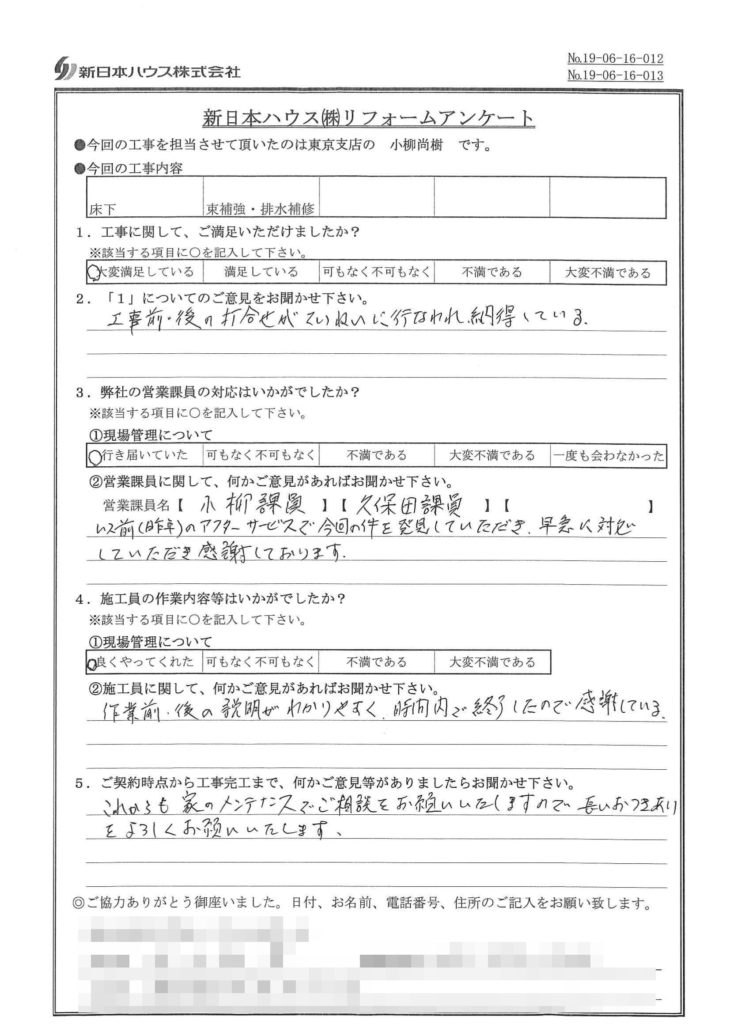 新日本ハウス株式会社
No.19-06-16-012
No.19-06-16-013
新日本ハウス㈱リフォームアンケート
●今回の工事を担当させて頂いたのは東京支店の 小柳尚樹 です。
●今回の工事内容
床下 束補強・排水補修
1．工事に関して、ご満足いただけましたか？
※該当する項目に○を記入して下さい。
大変満足している 満足している 可もなく不可もなく 不満である 大変不満である
2．「1」についてのご意見をお聞かせ下さい。
工事前・後の打合せがていねいに行なわれ、納得している。
3．弊社の営業課員の対応はいかがでしたか？
※該当する項目に○を記入して下さい。
①現場管理について
行き届いていた 可もなく不可もなく 不満である 大変不満である 一度も会わなかった
②営業課員に関して、何かご意見があればお聞かせ下さい。
営業課員名【 小柳課員 】【 久保田課員 】【 】
以前(昨年)のアフターサービスで今回の件を発見していただき、早急に対処
していただき感謝しております。
4．施工員の作業内容等はいかがでしたか？
※該当する項目に○を記入して下さい。
①現場管理について
良くやってくれた 可もなく不可もなく 不満である 大変不満である
②施工員に関して、何かご意見があればお聞かせ下さい。
作業前・後の説明がわかりやすく、時間内で終了したので感謝している。
5．ご契約時点から工事完工まで、何かご意見等がありましたらお聞かせ下さい。
これからも家のメンテナンスでご相談をお願いいたしますので、長いおつきあい
をよろしくお願いいたします、
◎ご協力ありがとう御座いました。日付、お名前、電話番号、住所のご記入をお願い致します。